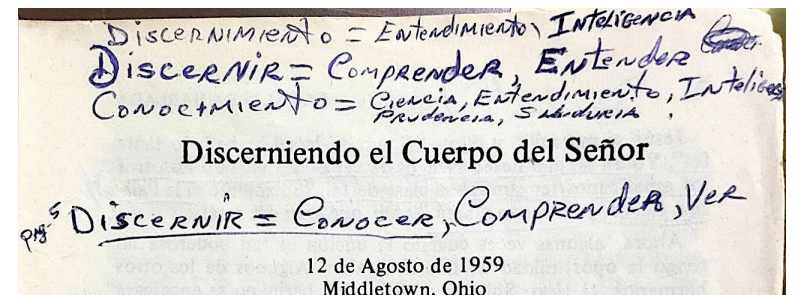 Discernimiento = Entendimiento, Inteligencia
Discernir = Comprender, Entender
Conocimiento = Ciencia, Entendimiento, Inteligencia
Prudencia, Sabiduria.
Discerniendo el Cuerpo del Señor
pag-5 Discernir = Conocer, Comprender, Ver
12 de Agosto de 1959
Middletown, Ohio